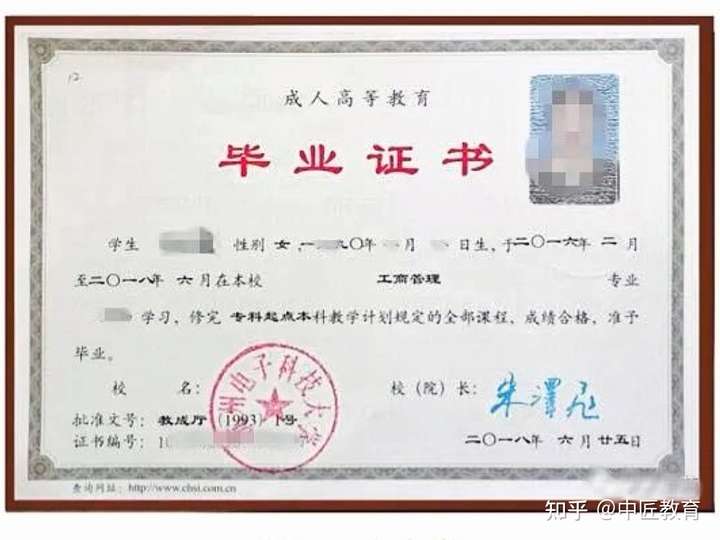 12
成人高等教育
毕业证书
学生 性别 女,一 九〇年 月 日生,于二〇一六年 二 月
至二〇一八年 六 月在本校 工商管理 专业
学习,修完 专科起点本科教学计划规定的全部课程、成绩合格,准予
毕业。
校 名: 州电子科技大学 校(院)长: 朱泽飞
批准文号: 教成厅(1993)1号
证书编号: 1 二〇一八年 六 月 廿五日
查询网址: http://www.chsi.com.cn
知乎 @中匠教育